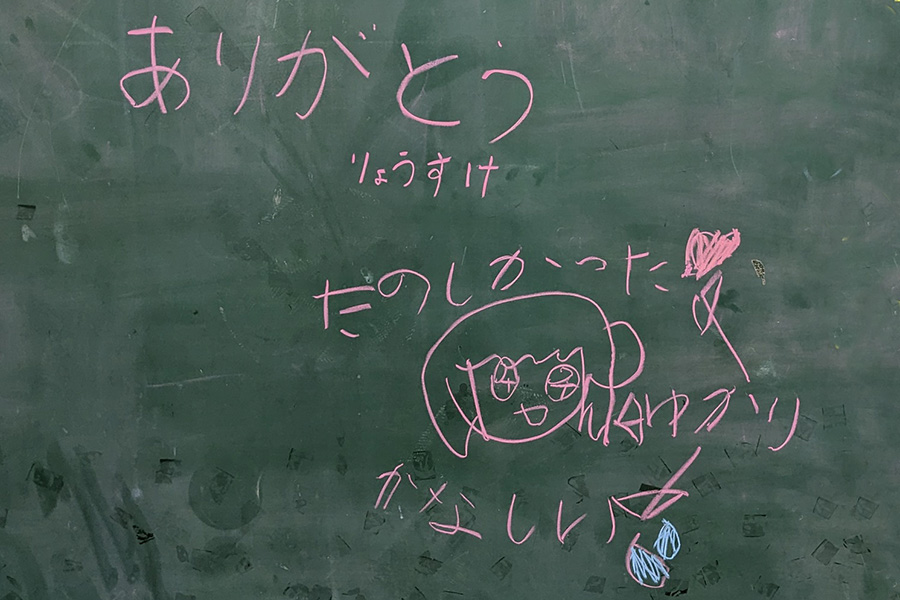 ありがとう
りょうすけ
たのしかった
ゆかり
かなしい